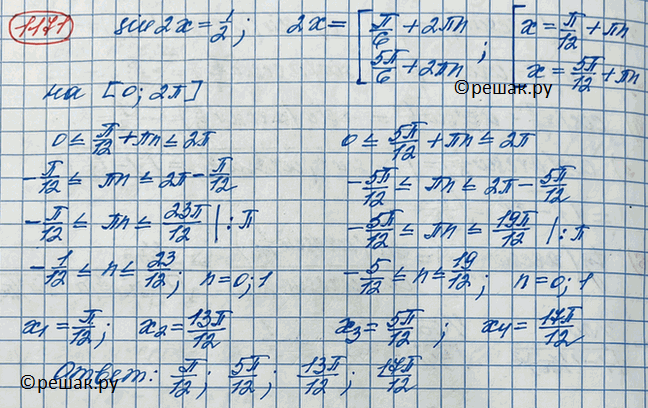 1171 sin2x = 1/2; 2x = [π/6 + 2πn 5π/6 + 2πn; [x = π/12 + πn x = 5π/12 + πn
©решак.ру
на [0; 2π]
0 ≤ π/12 + πn ≤ 2π
-π/12 ≤ πn ≤ 2π - π/12
-π/12 ≤ πn ≤ 23π/12 |: π
-1/12 ≤ n ≤ 23/12; n = 0; 1
0 ≤ 5π/12 + πn ≤ 2π
-5π/12 ≤ πn ≤ 2π - 5π/12
-5π/12 ≤ πn ≤ 19π/12 |: π
-5/12 ≤ n ≤ 19/12; n = 0; 1
x₁ = π/12; x₂ = 13π/12 x₃ = 5π/12; x₄ = 17π/12
Ответ: π/12; 5π/12; 13π/12; 17π/12
©решак.ру